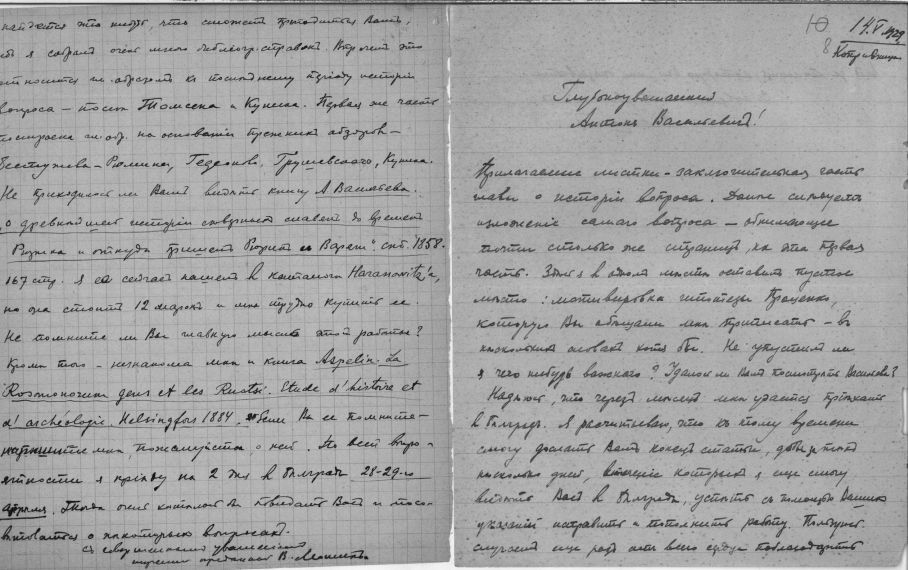 найдется что нибудь, что сможет пригодиться Вамъ,
я собралъ очень много библіогр. справокъ. Впрочемъ это
относится гл. образомъ къ послѣднему періоду исторіи
вопроса – послѣ Томсена и Куника. Первая же часть
построена гл. обр. на основаніи прежнихъ обзоровъ –
Бестужева-Рюмина, Гедеонова, Грушевского, Куника.
Не приходилось ли Вамъ видѣть книгу А. Васильева.
„о древнѣйшей исторіи сѣверныхъ славянъ до временъ
Рюрика и откуда пришелъ Рюрикъ и Варяги“ спб. 1858.
167 стр. Я ее сейчасъ нашелъ в каталогѣ Harassowitz'a,
но она стоитъ 12 марокъ и мнѣ трудно купить ее.
Не помните ли Вы главную мысль этой работы?
Кромѣ того – незнакома мнѣ и книга Aspelin. La
Rosomonorum gens et les Ruotsi. Etude d'histoire et
d'archéologie. Helsingfors 1884. Если Вы ее помните –
напишите мнѣ пожалуйста о ней. По всей вѣро-
ятности я пріѣду на 2 дня в Бѣлградъ 28-29-го
апрѣля. Тогда очень хотѣлось бы повидать Васъ и посо-
вѣтоваться о нѣкоторыхъ вопросахъ.
Съ совершеннымъ уваженіемъ
искренно преданный В. Мошинъ
14.V 1929
8
Копривница
Глубокоуважаемый
Антонъ Васильевичъ!
Прилагаемые листки – заключительная часть
главы о исторіи вопроса. Далѣе слѣдуетъ
изложеніе самаго вопроса – обнимающее
почти столько же страницъ, какъ эта первая
часть. Здѣсь я в одномъ мѣстѣ оставилъ пустое
мѣсто: мотивировка гипотезы Проценко,
которую Вы обѣщали мнѣ приписать – въ
нѣсколькихъ словахъ хотя бы. Не упустилъ ли
я чего нибудь важнаго? Удалось ли Вамъ посмотрѣть Васильева?
Надѣюсь, что черезъ мѣсяцъ мнѣ удастся пріѣхать
в Бѣлградъ. Я расчитываю, что къ тому времени
смогу дослать Вамъ конецъ статьи,
нѣсколько дней, втеченіе которыхъ я еще смогу
видѣть Васъ в Бѣлградѣ, успѣть съ помощью Вашихъ
указаній исправить и пополнить работу. Пользуясь
случаемъ еще разъ отъ всего сердца поблагодарить